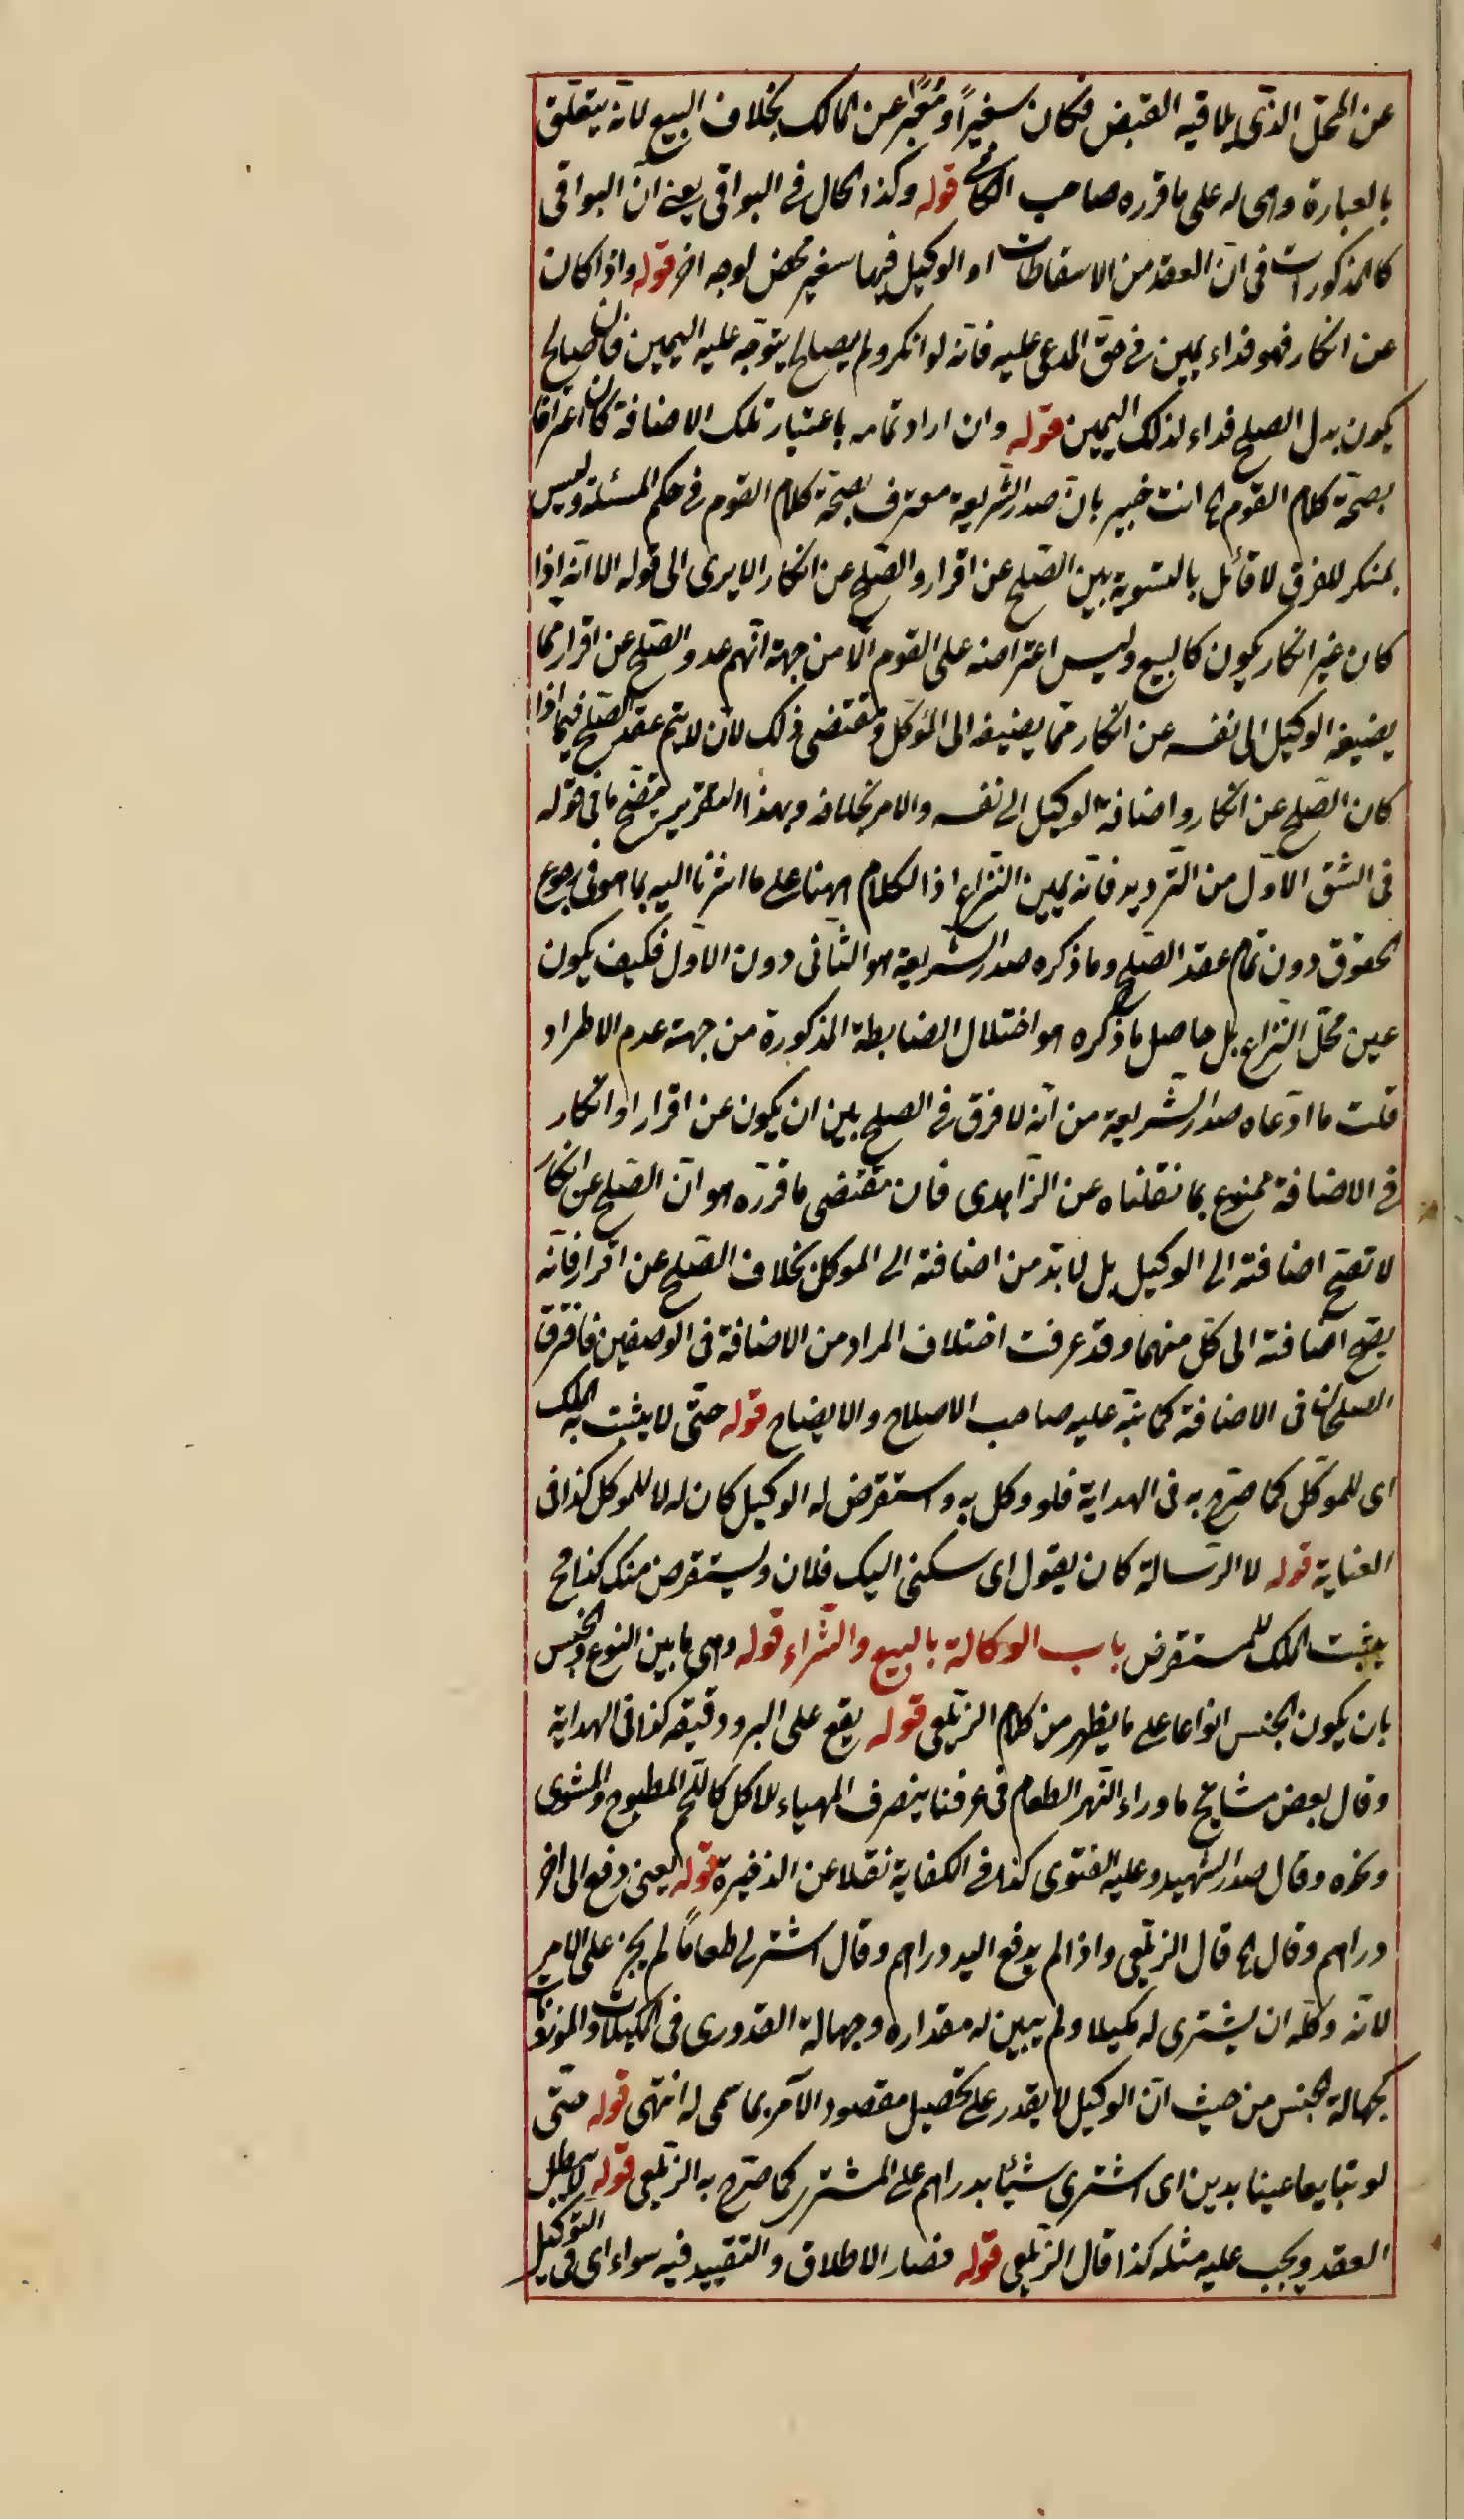 عن المحلّ الذى يلاقيه القبض فكان سفيراً ومعبّراً عن المالك بخلاف البيع لانّه يتعلّق
بالعبارة وهى له على ما قرره صاحب الكافى قوله وكذا الحال فى البواقى يعنى انّ البواقى
كالمذكورات فى انّ العقد من الاسقاطات او الوكيل فيها سفير محض لوجه اخر قوله واذا كان
عن انكار فهو فداء يمين فى حقّ المدعى عليه فانّه لو انكر ولم يصالح يتوجّه عليه اليمين فان صالح
يكون بدل الصلح فداء لذلك اليمين قوله وان اراد تمامه باعتبار تلك الاضافة كان اعترافا
بصحّة كلام القوم الخ انت خبير بانّ صدر الشّريعة معترف بصحّة كلام القوم فى حكم المسئلة وليس
بمنكر للفرق لا قائل بالتسوية بين الصّلح عن اقرار والصّلح عن انكار الا يرى الى قوله الا انّه اذا
كان غير انكار يكون كالبيع وليس اعتراضه على القوم الّا من جهة انّهم عدوا الصّلح عن اقرار ممّا
يضيفه الوكيل الى نفسه عن انكار ممّا يضيفه الى المؤكل ومقتضى ذلك لان لا يتم عقد الصّلح فيما اذا
كان الصّلح عن انكار واضافة الوكيل الى نفسه والامر بخلافه وبهذا التقرير يتّضح ما فى قوله
فى الشق الاوّل من التّرديد فانّه يمين النّزاع اذ الكلام ههنا على ما اشرنا اليه بما هو فى رجوع
الحقوق دون تمام عقد الصّلح وما ذكره صدر الشّريعة هو الثّانى دون الاوّل فكيف يكون
عين محّل النّزاع بل حاصل ما ذكره هو اختلال الضابطة المذكورة من جهة عدم الاطراد
قلت ما ادّعاه صدر الشّريعة من انّه لا فرق فى الصلح بين ان يكون عن اقرار او انكار
فى الاضافة ممنوع بما نقلناه عن الزّاهدى فان مقتضى ما قررّه هو انّ الصّلح عن انكار
لا تصحّ اضافته الى الوكيل بل لا بدّ من اضافته الى الموكل بخلاف الصّلح عن اقرار فانّه
يصحّ اضافته الى كلّ منهما وقد عرفت اختلاف المراد من الاضافة فى الوصفين فافترق
الصلحان فى الاضافة كما نبّه عليه صاحب الاصلاح والايضاح قوله حتّى لا يثبت به الملك
اى للموكّل كما صرّح به فى الهداية فلو وكل به واستقرض له الوكيل كان له لا للموكل كذا فى
العناية قوله لا الرّسالة كان يقول ارسلنى اليك فلان ويستقرض منك كذا فح
يثبت الملك للمستقرض باب الوكالة بالبيع والشّراء قوله وهى ما بين النوع والجنس
بان يكون الجنس انواعا على ما يظهر من كلام الزيلعى قوله يقع على البر ودقيقه كذا فى الهداية
وقال بعض مشايخ ما وراء النّهر الطعام فى عرفنا ينصرف المهياء للاكل كاللّحم المطبوخ والمشوى
ونحوه وقال صدر الشّهيد وعليه الفتوى كذا فى الكفاية نقلا عن الذخيرة قوله يعنى دفع الى اخر
دراهم وقال الخ قال الزيلعى واذا لم يدفع اليه دراهم وقال اشتر لى طعاماً لم يجز على الامر
لانّه وكّله ان يشترى له مكيلا ولم يبين له مقداره وجهالة القدورى فى المكيلات والموزونات
كجهالة الجنس من حيث انّ الوكيل لا يقدر على تحصيل مقصود الآمر بما سمى له انتهى قوله حتّى
لو تبايعا عينا بدين اى اشترى شيئا بدراهم على المشترى كما صرّح به الزيلعى قوله لا يبطل
العقد ويجب عليه مثله كذا قال الزيلعى قوله فصار الاطلاق والتقييد فيه سواء اى فى التوكيل